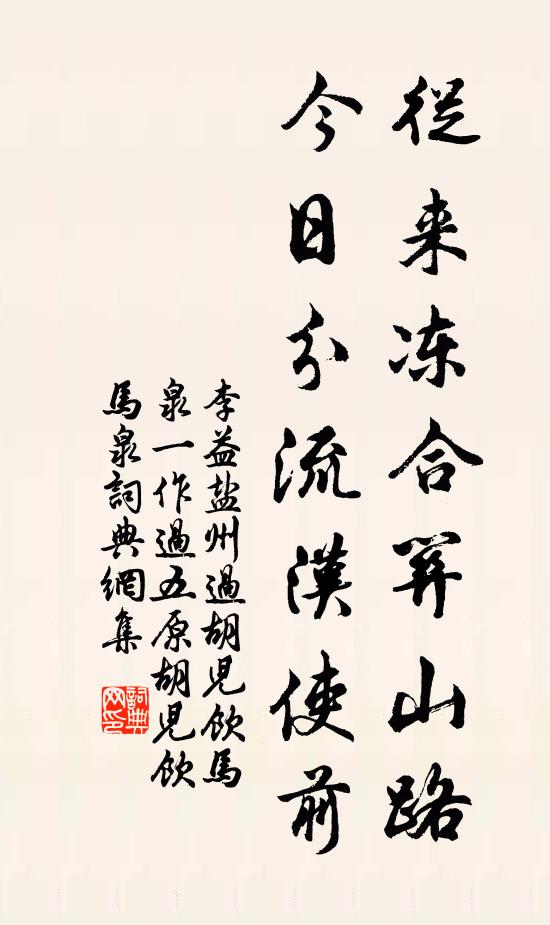 從来冻合関山路
今日分流漢使前
李益盐州過胡児飲馬
泉一作過五原胡児飲
馬泉詞典網集
詞典网印